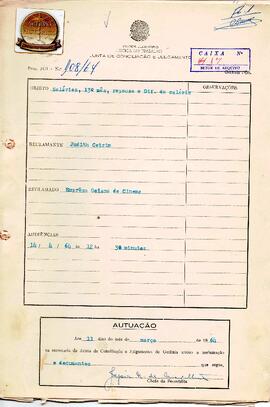 PODER JUDICIÁRIO
JUSTIÇA DO TRABALHO
JUNTA DE CONCILIAÇÃO E JULGAMENTO
CAIXA Nº
SETOR DE ARQUIVO
Proc. JCJ - Nº 908/64
OBJETO Salários, 13º mês, repouso e Dif. de salário
OBSERVAÇÕES
RECLAMANTE Judith
RECLAMADO Emprêsa Goiana de Cinema
AUDIÊNCIAS
14/4/64 às 12 hs 30 minutos.
AUTUAÇÃO
Aos 11 dias do mês de março de 1964
na secretaria da Junta de Conciliação e Julgamento de Goiânia autuo a
e documentos que segue.
Chefe da Secretaria